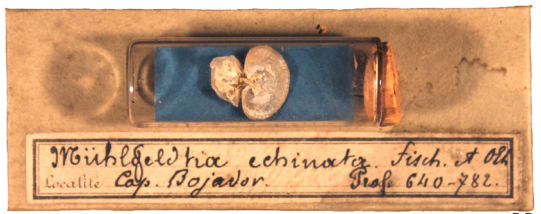 Mühlfeldtia echinata. Fisch. & Oehl
Localité Cap. Bojador. Prof. 640-782.